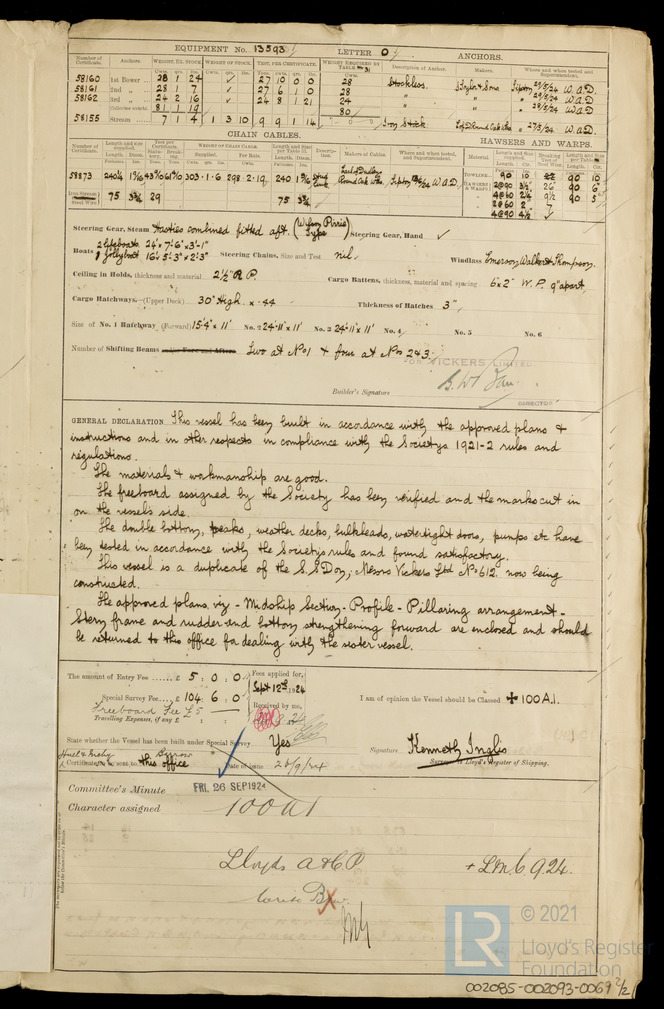 EQUIPMENT No. 13593 LETTER O ANCHORS.
Number of Certificate. Anchors. WEIGHT, EX. STOCK WEIGHT OF STOCK. TEST, PER CERTIFICATE. WEIGHT REQUIRED BY TABLE 31 Description of Anchor. Makers. Where and when tested and Superintendent.
Cwts. qrs. lbs. Cwt. qrs. lbs. Tons. cwts. qrs. lbs. Cwts.
58160 1st Bower 28 1 24 ✓ 27 10 0 0 28 Stockless. Taylor & Sons Tipton 29/5/24 W.A.D.
58161 2nd " 28 1 7 ✓ 27 6 1 0 28 " " " 29/5/24 W.A.D.
58162 3rd " 24 2 16 ✓ 24 8 1 21 24 " " " 28/5/24 W.A.D.
Collective weight 81 1 19 80
58155 Stream 7 1 4 1 3 10 9 9 1 14 Iron Stock 27/5/24 W.A.D.
CHAIN CABLES. HAWSERS AND WARPS.
Number of Certificate. Length and size supplied. Test per Certificate WEIGHT OF CHAIN CABLE. Length and Size per Table 31. Description. Makers of Cables. Where and when tested, and Superintendent. Material. Length and Size supplied. Breaking Test of Steel Wire. Length and Size per Table
Length. Diam. Statutory. Breaking. Supplied. Per Rule. Length. Diam.
58873 240¼ 1 9/16 303·1·6 298·2·19 240 1 9/16 stud link Earl of Dudley Round Oak Wks. Tipton W.A.D. TOWLINE 90 10 90 10
HAWSERS & WARPS 2@90 3½ 26 90 6
Iron Stream or Steel Wire 75 3¾ 29 75 3¾ 4@60 2¼ 9½ 90 5
2@60 2 7
4@90 4½ ✓
Steering Gear, Steam Hasties combined fitted aft. (Wilson Pirrie Type) Steering Gear, Hand ✓
Boats 2 lifeboats 24'× 7'-6"× 3'-1"
1 Jollyboat 16'× 5'-3"× 2'-3" Steering Chains, Size and Test nil. Windlass Emerson, Walker & Thompson.
Ceiling in Holds, thickness and material 2½" R.P. Cargo Battens, thickness, material and spacing 6×2" W.P. 9" apart.
Cargo Hatchways.—(Upper Deck) 30" High. × ·44 Thickness of Hatches 3".
Size of No. 1 Hatchway (Forward) 15'4"× 11' No. 2 24'·11"× 11' No. 3 24'·11"× 11' No. 4 No. 5 No. 6
Number of Shifting Beams Two at No 1 & four at Nos 2 & 3.
FOR VICKERS LIMITED.
Builder's Signature
DIRECTOR
GENERAL DECLARATION This vessel has been built in accordance with the approved plans &
instructions and in other respects in compliance with the Societys 1921-2 rules and
regulations.
The materials & workmanship are good.
The freeboard assigned by the Society has been verified and the marks cut in
on the vessel's side.
The double bottom, peaks, weather decks, bulkheads, watertight doors, pumps etc have
been tested in accordance with the Society's rules and found satisfactory.
This vessel is a duplicate of the S.S Don, Messrs Vickers Ltd No 612. now being
constructed.
The approved plans, viz - Midship Section - Profile - Pillaring arrangement -
Stern frame and rudder and bottom strengthening forward are enclosed and should
be returned to this office for dealing with the sister vessel.
The amount of Entry Fee ...... £ 5 : 0 : 0 Fees applied for,
Sept 12th 1924
Special Survey Fee.... £ 104 : 6 : 0 Received by me, I am of opinion the Vessel should be Classed ✠ 100A.1.
Freeboard Fee £5
Travelling Expenses, if any £
State whether the Vessel has been built under Special Survey Yes Signature Kenneth Inglis
Surveyor to Lloyd's Register of Shipping.
Barrow
Certificate to be sent to this office Date of issue 26/9/24
Committee's Minute FRI. 26 SEP 1924
Character assigned 100A1
Lloyds A & C.P. + LMC 9.24.
© 2021
LR Lloyd's Register
Foundation
002085-002093-0069 2/2